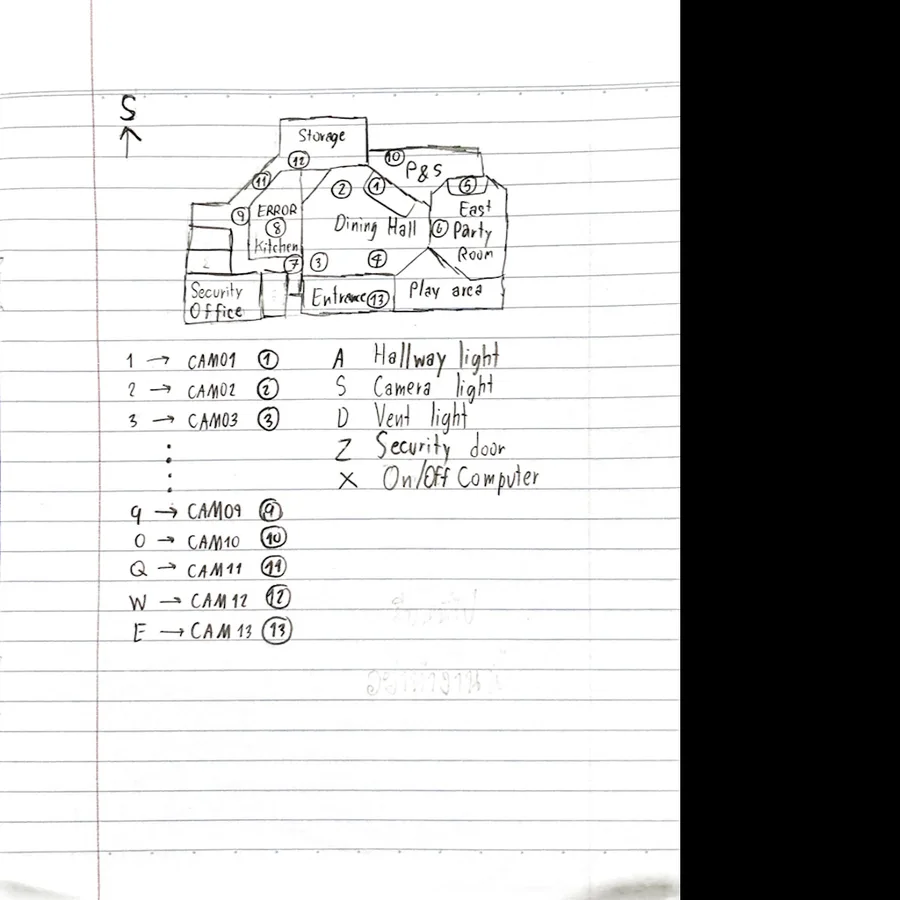 S
↑
Storage
12
10
P&S
11
2
1
5
9
ERROR
8
Kitchen
Dining Hall
6
East
Party
Room
7
3
4
Security
Office
Entrance 13
Play area
1 → CAM01 ①
2 → CAM02 ②
3 → CAM03 ③
9 → CAM09 ⑨
0 → CAM10 ⑩
Q → CAM11 ⑪
W → CAM12 ⑫
E → CAM13 ⑬
A Hallway light
S Camera light
D Vent light
Z Security door
X On/Off Computer